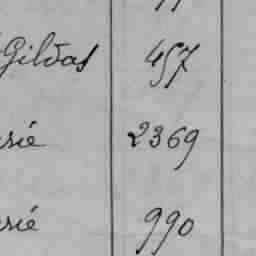 Gildas 457
rié 2369
rié 990